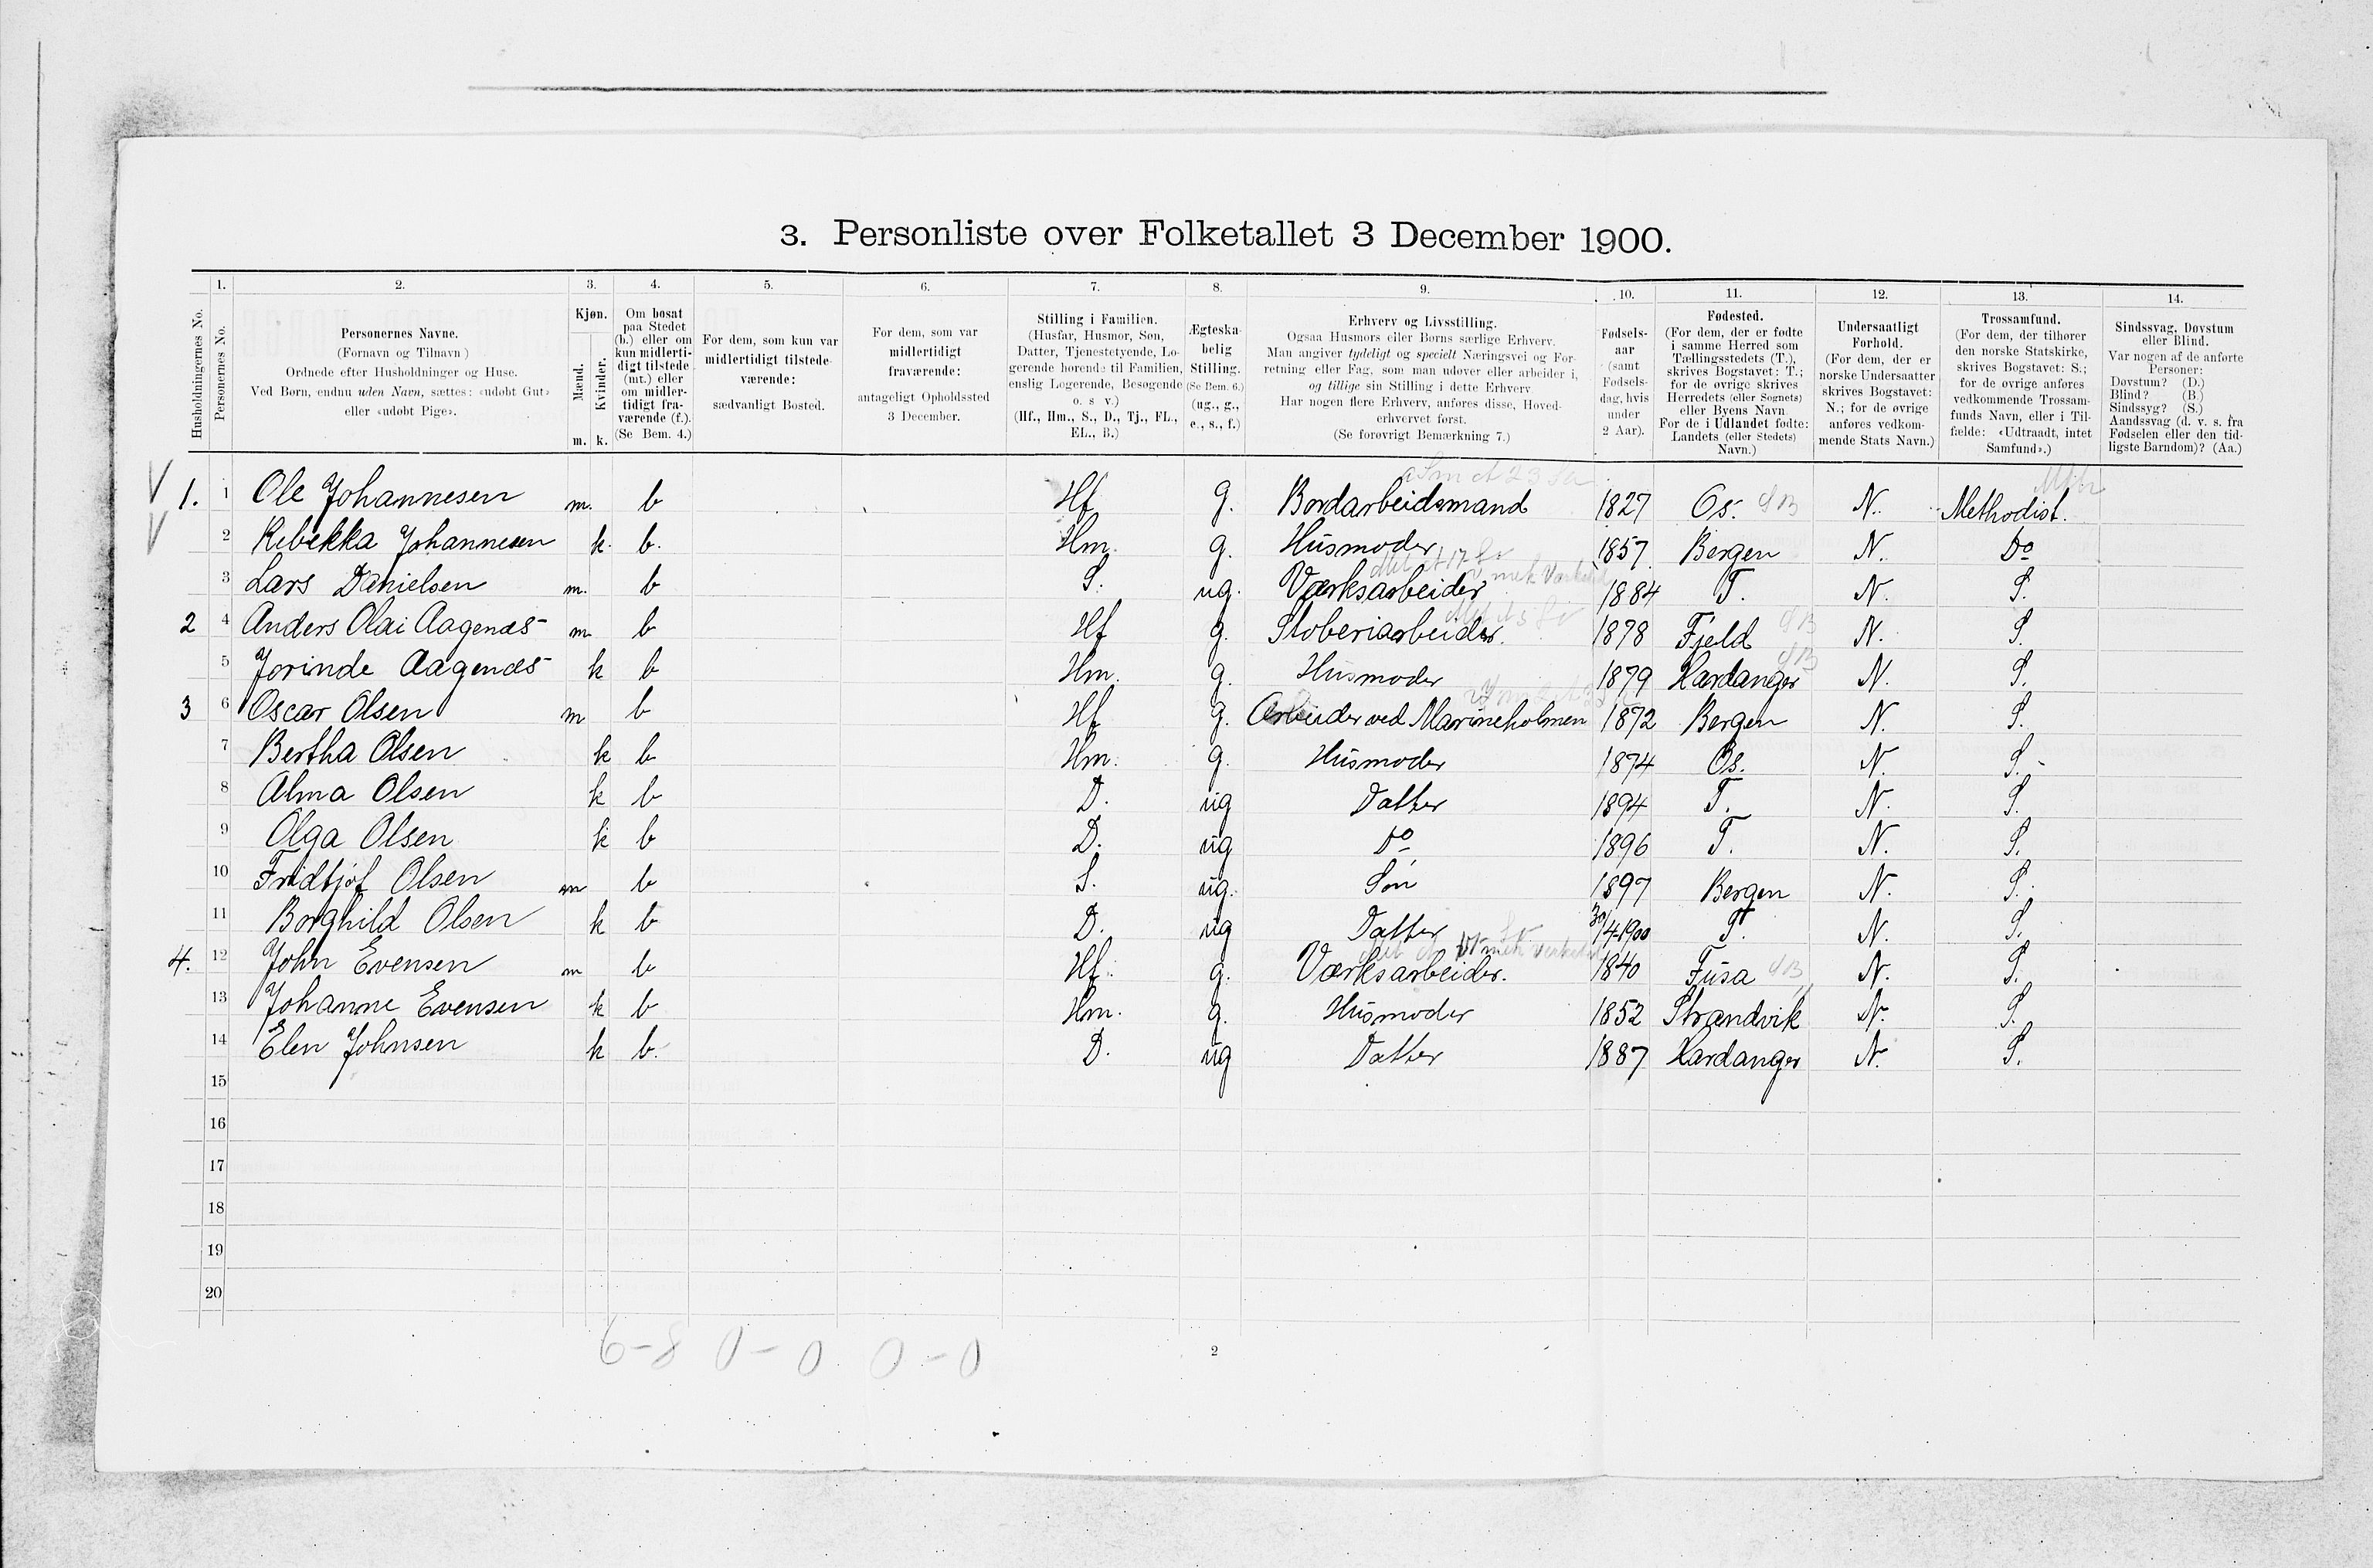 3. Personliste over Folketallet 3 December 1900.
1. 2. 3. 4. 5. 6. 7. 8. 9. 10. 11. 12. 13. 14.
Husholdningernes No.
Personernes No.
Personernes Navne.
(Fornavn og Tilnavn)
Ordnede efter Husholdninger og Huse.
Ved Børn, endnu uden Navn, sættes: «udøbt Gut»
eller «udøbt Pige».
Kjøn.
Mænd.
Kvinder.
m. k.
Om bosat
paa Stedet
(b.) eller om
kun midlerti-
digt tilstede
(mt.) eller
om midler-
tidigt fra-
værende (f.).
(Se Bem. 4.)
For dem, som kun var
midlertidigt tilstede-
værende:
sædvanligt Bosted.
For dem, som var
midlertidigt
fraværende:
antageligt Opholdssted
3 December.
Stilling i Familien.
(Husfar, Husmor, Søn,
Datter, Tjenestetyende, Lo-
gerende hørende til Familien,
enslig Logerende, Besøgende
o. s v.)
(Hf., Hm., S., D., Tj., FL.,
EL., B.)
Ægteska-
belig
Stilling.
(Se Bem. 6.)
(ug., g.,
e., s., f.)
Erhverv og Livsstilling.
Ogsaa Husmors eller Børns særlige Erhverv.
Man angiver tydeligt og specielt Næringsvei og For-
retning eller Fag, som man udøver eller arbeider i,
og tillige sin Stilling i dette Erhverv
Har nogen flere Erhverv, anføres disse, Hoved-
erhvervet først.
(Se forøvrigt Bemærkning 7.)
Fødsels-
aar
(samt
Fødsels-
dag, hvis
under
2 Aar).
Fødested.
(For dem, der er fødte
i samme Herred som
Tællingsstedets (T.),
skrives Bogstavet: T.;
for de øvrige skrives
Herredets (eller Sognets)
eller Byens Navn
For de i Udlandet fødte:
Landets (eller Stedets)
Navn.)
Undersaatligt
Forhold.
(For dem, der er
norske Undersaatter
skrives Bogstavet:
N.; for de øvrige
anføres vedkom-
mende Stats Navn.)
Trossamfund.
(For dem, der tilhører
den norske Statskirke,
skrives Bogstavet: S.;
for de øvrige anføres
vedkommende Trossam-
funds Navn, eller i Til-
fælde: «Udtraadt, intet
Samfund».)
Sindssvag, Døvstum
eller Blind.
Var nogen af de anførte
Personer:
Døvstum? (D.)
Blind? (B.)
Sindssyg? (S.)
Aandssvag (d. v. s. fra
Fødselen eller den tid-
ligste Barndom)? (Aa.)
1. 1 Ole Johannesen m. b Hf g. Bordarbeidsmand 1827 Os. N. Methodist.
2 Rebekka Johannesen k. b. Hm. g. Husmoder 1857 Bergen N. Do
3 Lars Danielsen m. b S. ug. Værksarbeider 1884 T. N. S.
2 4 Anders Olai Aagenæs m b Hf g. Støberiarbeider. 1878 Fjeld N. S.
5 Jorinde Aagenæs k b Hm. g. Husmoder 1879 Hardanger N. S.
3 6 Oscar Olsen m b Hf g. Arbeider ved Marineholmen 1872 Bergen N. S.
7 Bertha Olsen k b Hm. g. Husmoder 1874 Os. N. S.
8 Alma Olsen k b D. ug Datter 1894 T. N. S.
9 Olga Olsen k b D. ug Do 1896 T. N. S.
10 Fridtjof Olsen m b S. ug. Søn 1897 Bergen N. S.
11 Borghild Olsen k b D. ug Datter 30/4-1900 T. N. S.
4. 12 John Evensen m b Hf. g. Værksarbeider. 1840 Fusa N. S.
13 Johanne Evensen k b Hm. g. Husmoder 1852 Strandvik N. S.
14 Elen Johnsen k b. D. ug Datter 1887 Hardanger N. S.
15
16
17
18
19
20
6-8 0-0 0-0
2